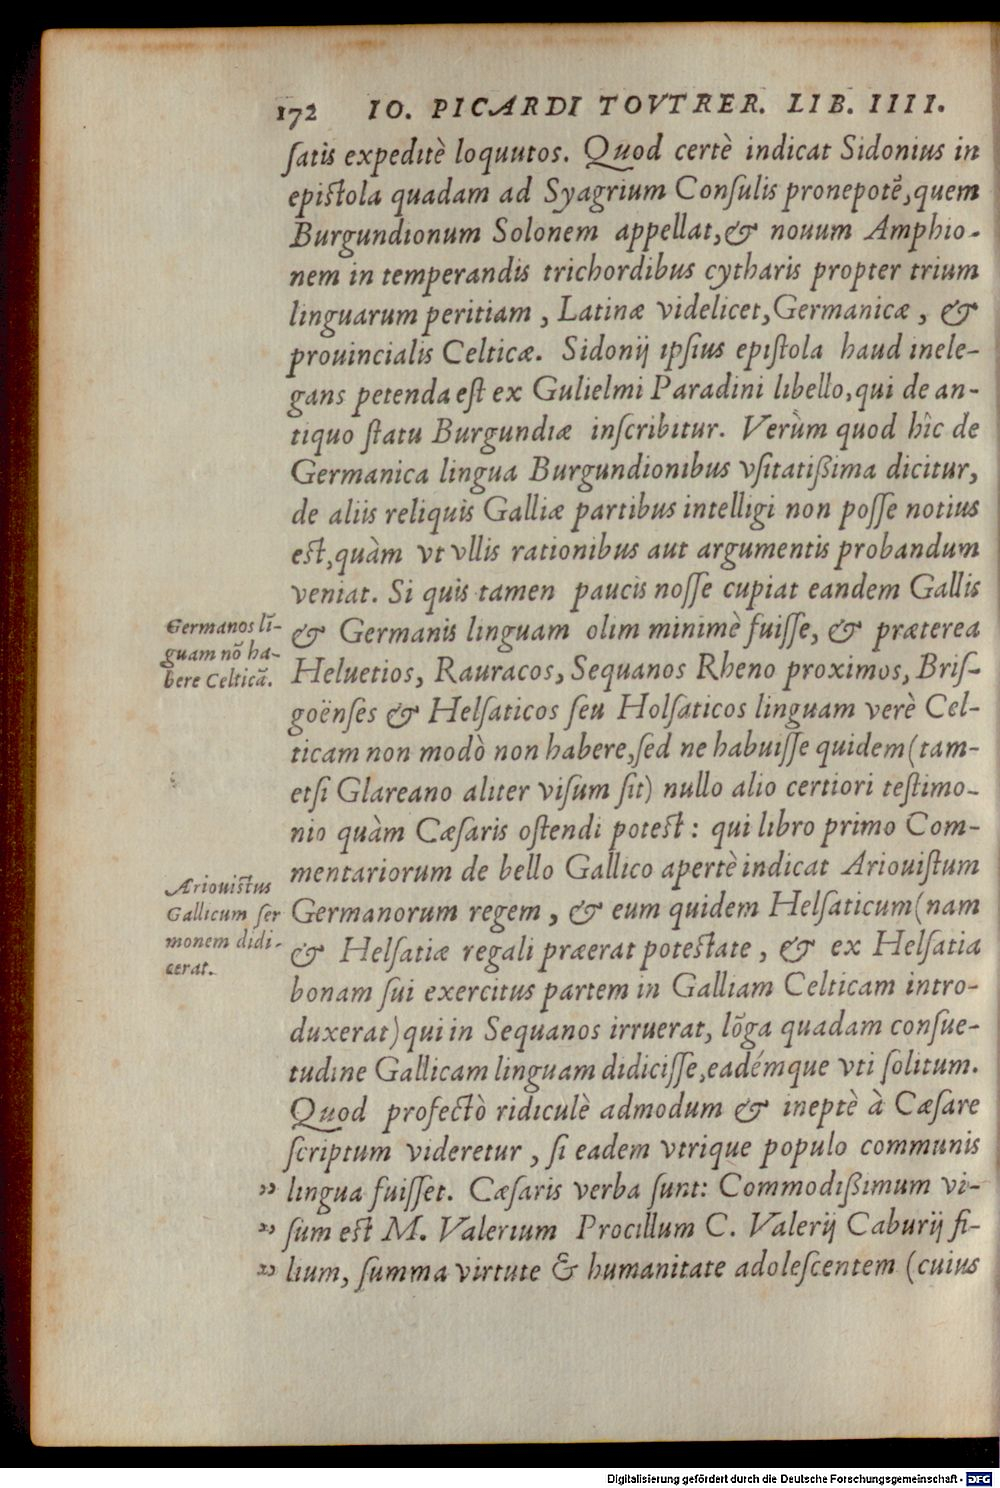 172 IO. PICARDI TOVTRER. LIB. IIII.
ſatis expeditè loquutos. Quod certè indicat Sidonius in
epiſtola quadam ad Syagrium Conſulis pronepotē, quem
Burgundionum Solonem appellat, & nouum Amphio-
nem in temperandis trichordibus cytharis propter trium
linguarum peritiam, Latinæ videlicet, Germanicæ, &
prouincialis Celticæ. Sidonij ipſius epiſtola haud inele-
gans petenda eſt ex Gulielmi Paradini libello, qui de an-
tiquo ſtatu Burgundiæ inſcribitur. Verùm quod hîc de
Germanica lingua Burgundionibus vſitatißima dicitur,
de aliis reliquis Galliæ partibus intelligi non poſſe notius
eſt, quàm vt vllis rationibus aut argumentis probandum
veniat. Si quis tamen paucis noſſe cupiat eandem Gallis
& Germanis linguam olim minimè fuiſſe, & præterea
Heluetios, Rauracos, Sequanos Rheno proximos, Briſ-
goënſes & Helſaticos ſeu Holſaticos linguam verè Cel-
ticam non modò non habere, ſed ne habuiſſe quidem (tam-
etſi Glareano aliter viſum ſit) nullo alio certiori teſtimo-
nio quàm Cæſaris oſtendi poteſt: qui libro primo Com-
mentariorum de bello Gallico apertè indicat Ariouiſtum
Germanorum regem, & eum quidem Helſaticum (nam
& Helſatiæ regali præerat poteſtate, & ex Helſatia
bonam ſui exercitus partem in Galliam Celticam intro-
duxerat) qui in Sequanos irruerat, lōga quadam conſue-
tudine Gallicam linguam didiciſſe, eadémque vti ſolitum.
Quod profectò ridiculè admodum & ineptè à Cæſare
ſcriptum videretur, ſi eadem vtrique populo communis
" lingua fuiſſet. Cæſaris verba ſunt: Commodißimum vi-
" ſum eſt M. Valerium Procillum C. Valerij Caburij fi-
" lium, ſumma virtute & humanitate adoleſcentem (cuius
Germanos lī-
guam nō ha-
bere Celticā.
Ariouiſtus
Gallicum ſer
monem didi-
cerat.
Digitalisierung gefördert durch die Deutsche Forschungsgemeinschaft - DFG